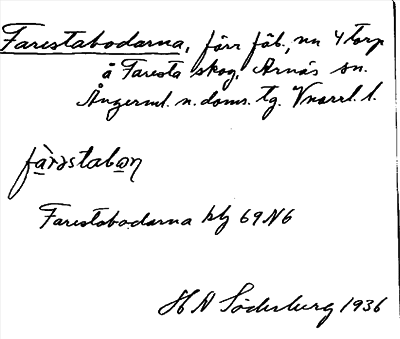 Farestabodarna, förr fäb., nu 4 torp
å Faresta skog, Arnäs sn.
Ångerml. n. doms. tg. Vnorrl. l.
fàrəstabo̲n
Farestabodarna kbj 69 N6
H A Söderberg 1936